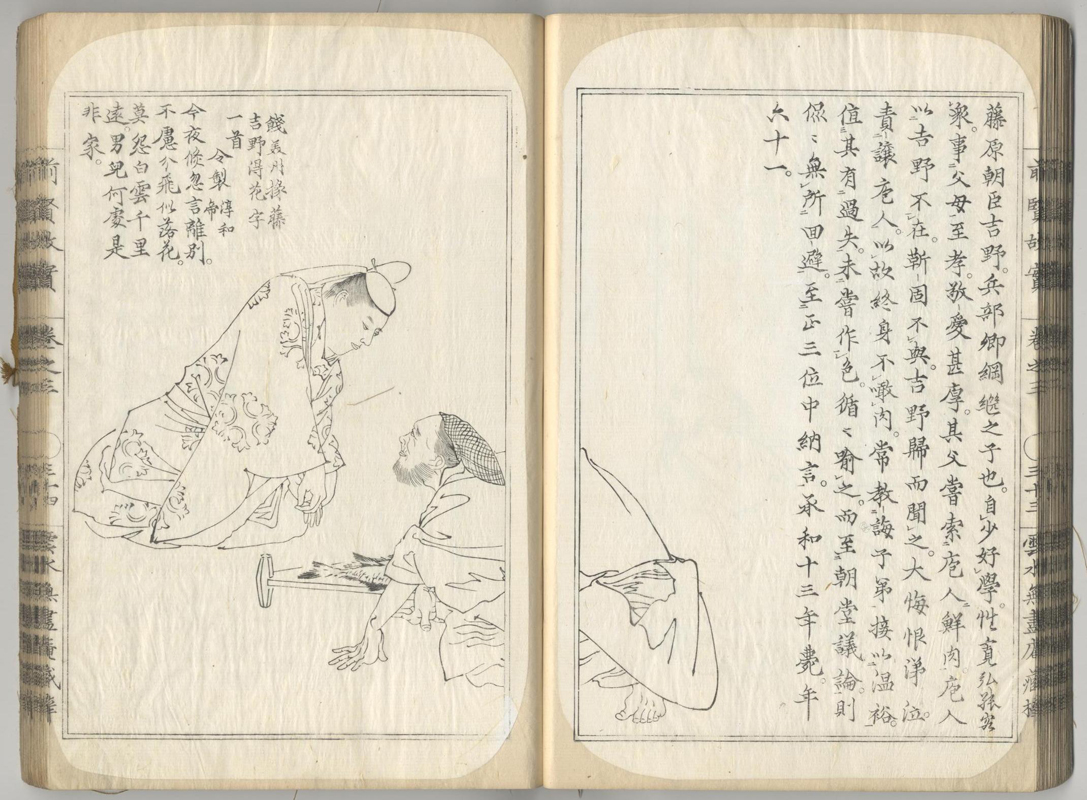 藤原朝臣吉野。兵部卿綱繼之子也。自少好學。性寬弘
衆。事父母至孝。敬愛甚厚。其父嘗索庖人鮮肉。庖人
以吉野不在。靳固不與。吉野歸而聞之。大悔恨涕泣。
責讓庖人。以故終身不噉肉。常教誨子弟。接以温裕。
值其有過失。未嘗作色。循〻喻之。而至朝堂議論。則
侃〻無所回避。至正三位中納言。承和十三年薨。年
六十一。
前賢故實
卷之三
三十三
雲水無盡庵藏
餞美州掾藤
吉野得花字
一首
令製 淳和帝
今夜倏忽言離別。
不慮分飛似落花。
莫怨白雲千里
遠。男兒何處是
非家。
前賢故實
卷之三
雲水無盡庵藏